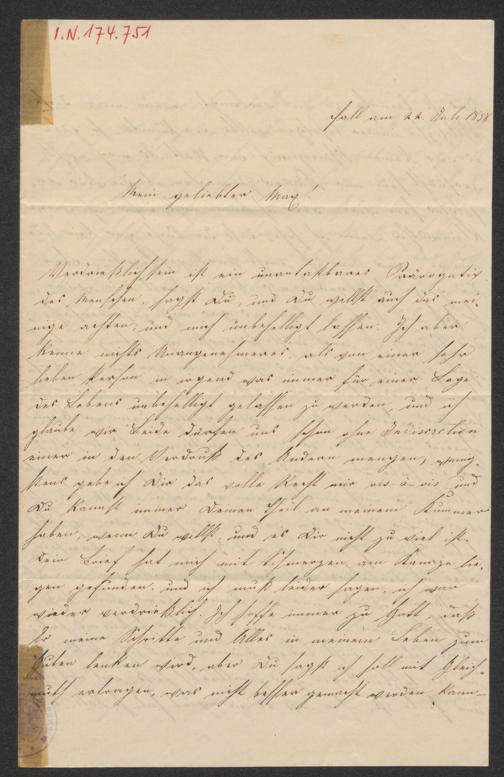 I.N. 174.751
Hall am 22. Juli 1858
Mein geliebter Max!
Verdrießlichsein ist ein unantastbares Prärogativ
des Menschen, sagst Du, und Du willst auch das mei-
nige achten, und mich unbehelligt lassen. Ich aber
kenne nichts Unangenehmeres als von einer sehr
lieben Person in irgend was immer für einer Lage
des Lebens unbehelligt gelassen zu werden, und ich
glaube wir Beide dürfen uns schon ohne Indiscretion
einer in den Verdruß des Andern mengen, wenig-
stens gebe ich Dir das volle Recht mir vis à-vis, und
Du kannst immer Deinen Theil an meinem Kummer
haben, wenn Du willst, und es Dir nicht zu viel ist.
Dein Brief hat mich mit Schmerzen am Kanape lie-
gen gefunden, und ich muß leider sagen, ich war
wieder verdrießlich. Ich hoffe immer zu Gott, daß
Er meine Schritte und Alles in meinem Leben zum
Guten lenken wird, aber Du sagst ich soll mit Gleich-
muth ertragen, was nicht besser gemacht werden kann–